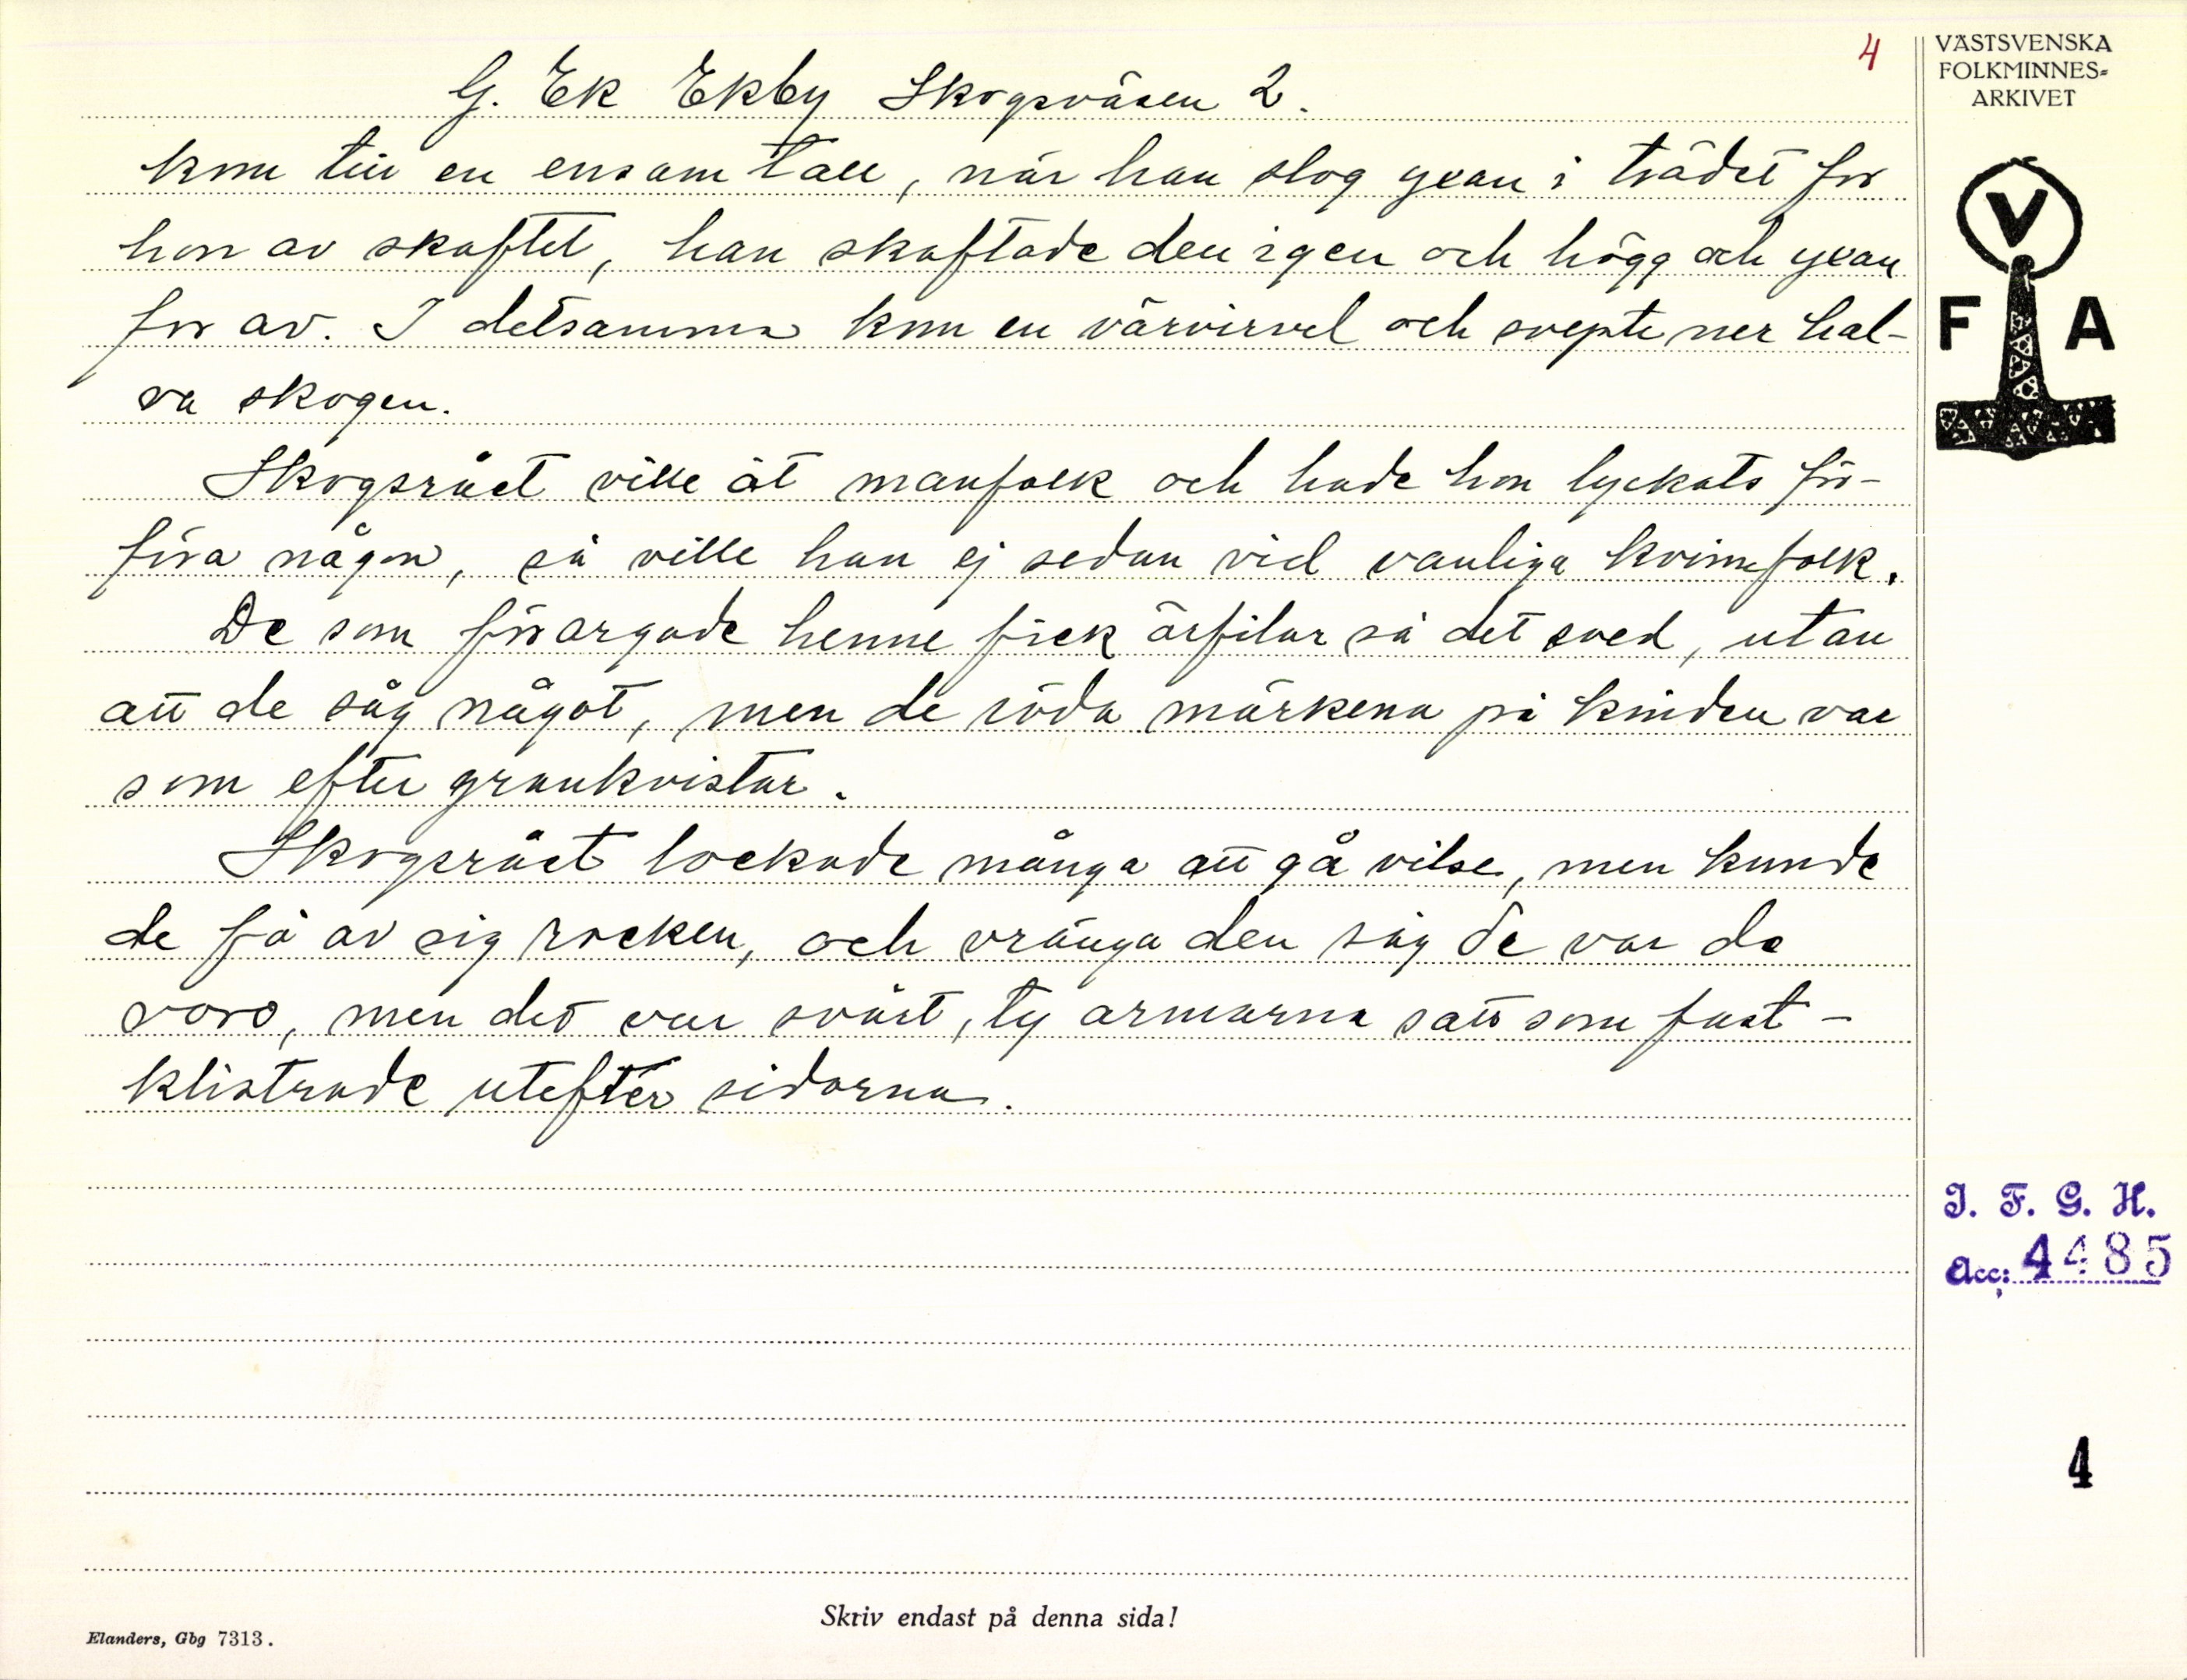 4
G. Ek Ekby Skogsväsen 2.
kom till en ensam tall, när han slog yxan i trädet for
hon av skaftet, han skaftade den igen och högg och yxan
for av. I detsamma kom en värvirvel och svepte ner hal-
va skogen.
Skogsrået ville åt manfolk och hade hon lyckats för-
föra någon, så ville han ej sedan vid vanliga kvinnfolk.
De som förargade henne fick örfilar så det sved, utan
att de såg något, men de röda märkena på kinden var
som efter grankvistar.
Skogsrået lockade många att gå vilse, men kunde
de få av sig rocken, och vränga den såg de var de
voro, men det var svårt, ty armarna satt som fast-
klistrade utefter sidorna.
VÄSTSVENSKA
FOLKMINNES-
ARKIVET
V
F A
I. F. G. H.
Acc: 4485
4
Skriv endast på denna sida!
Elanders, Gbg 7313.